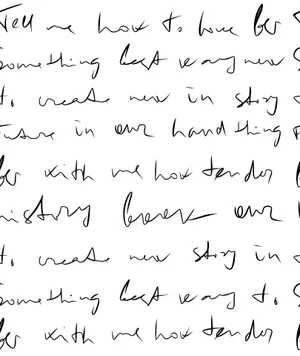 Tell me how to love
something best way new
to create new in story
future in our hand thing
with me how tender
history our
to create new story in
something best way to
with me how tender